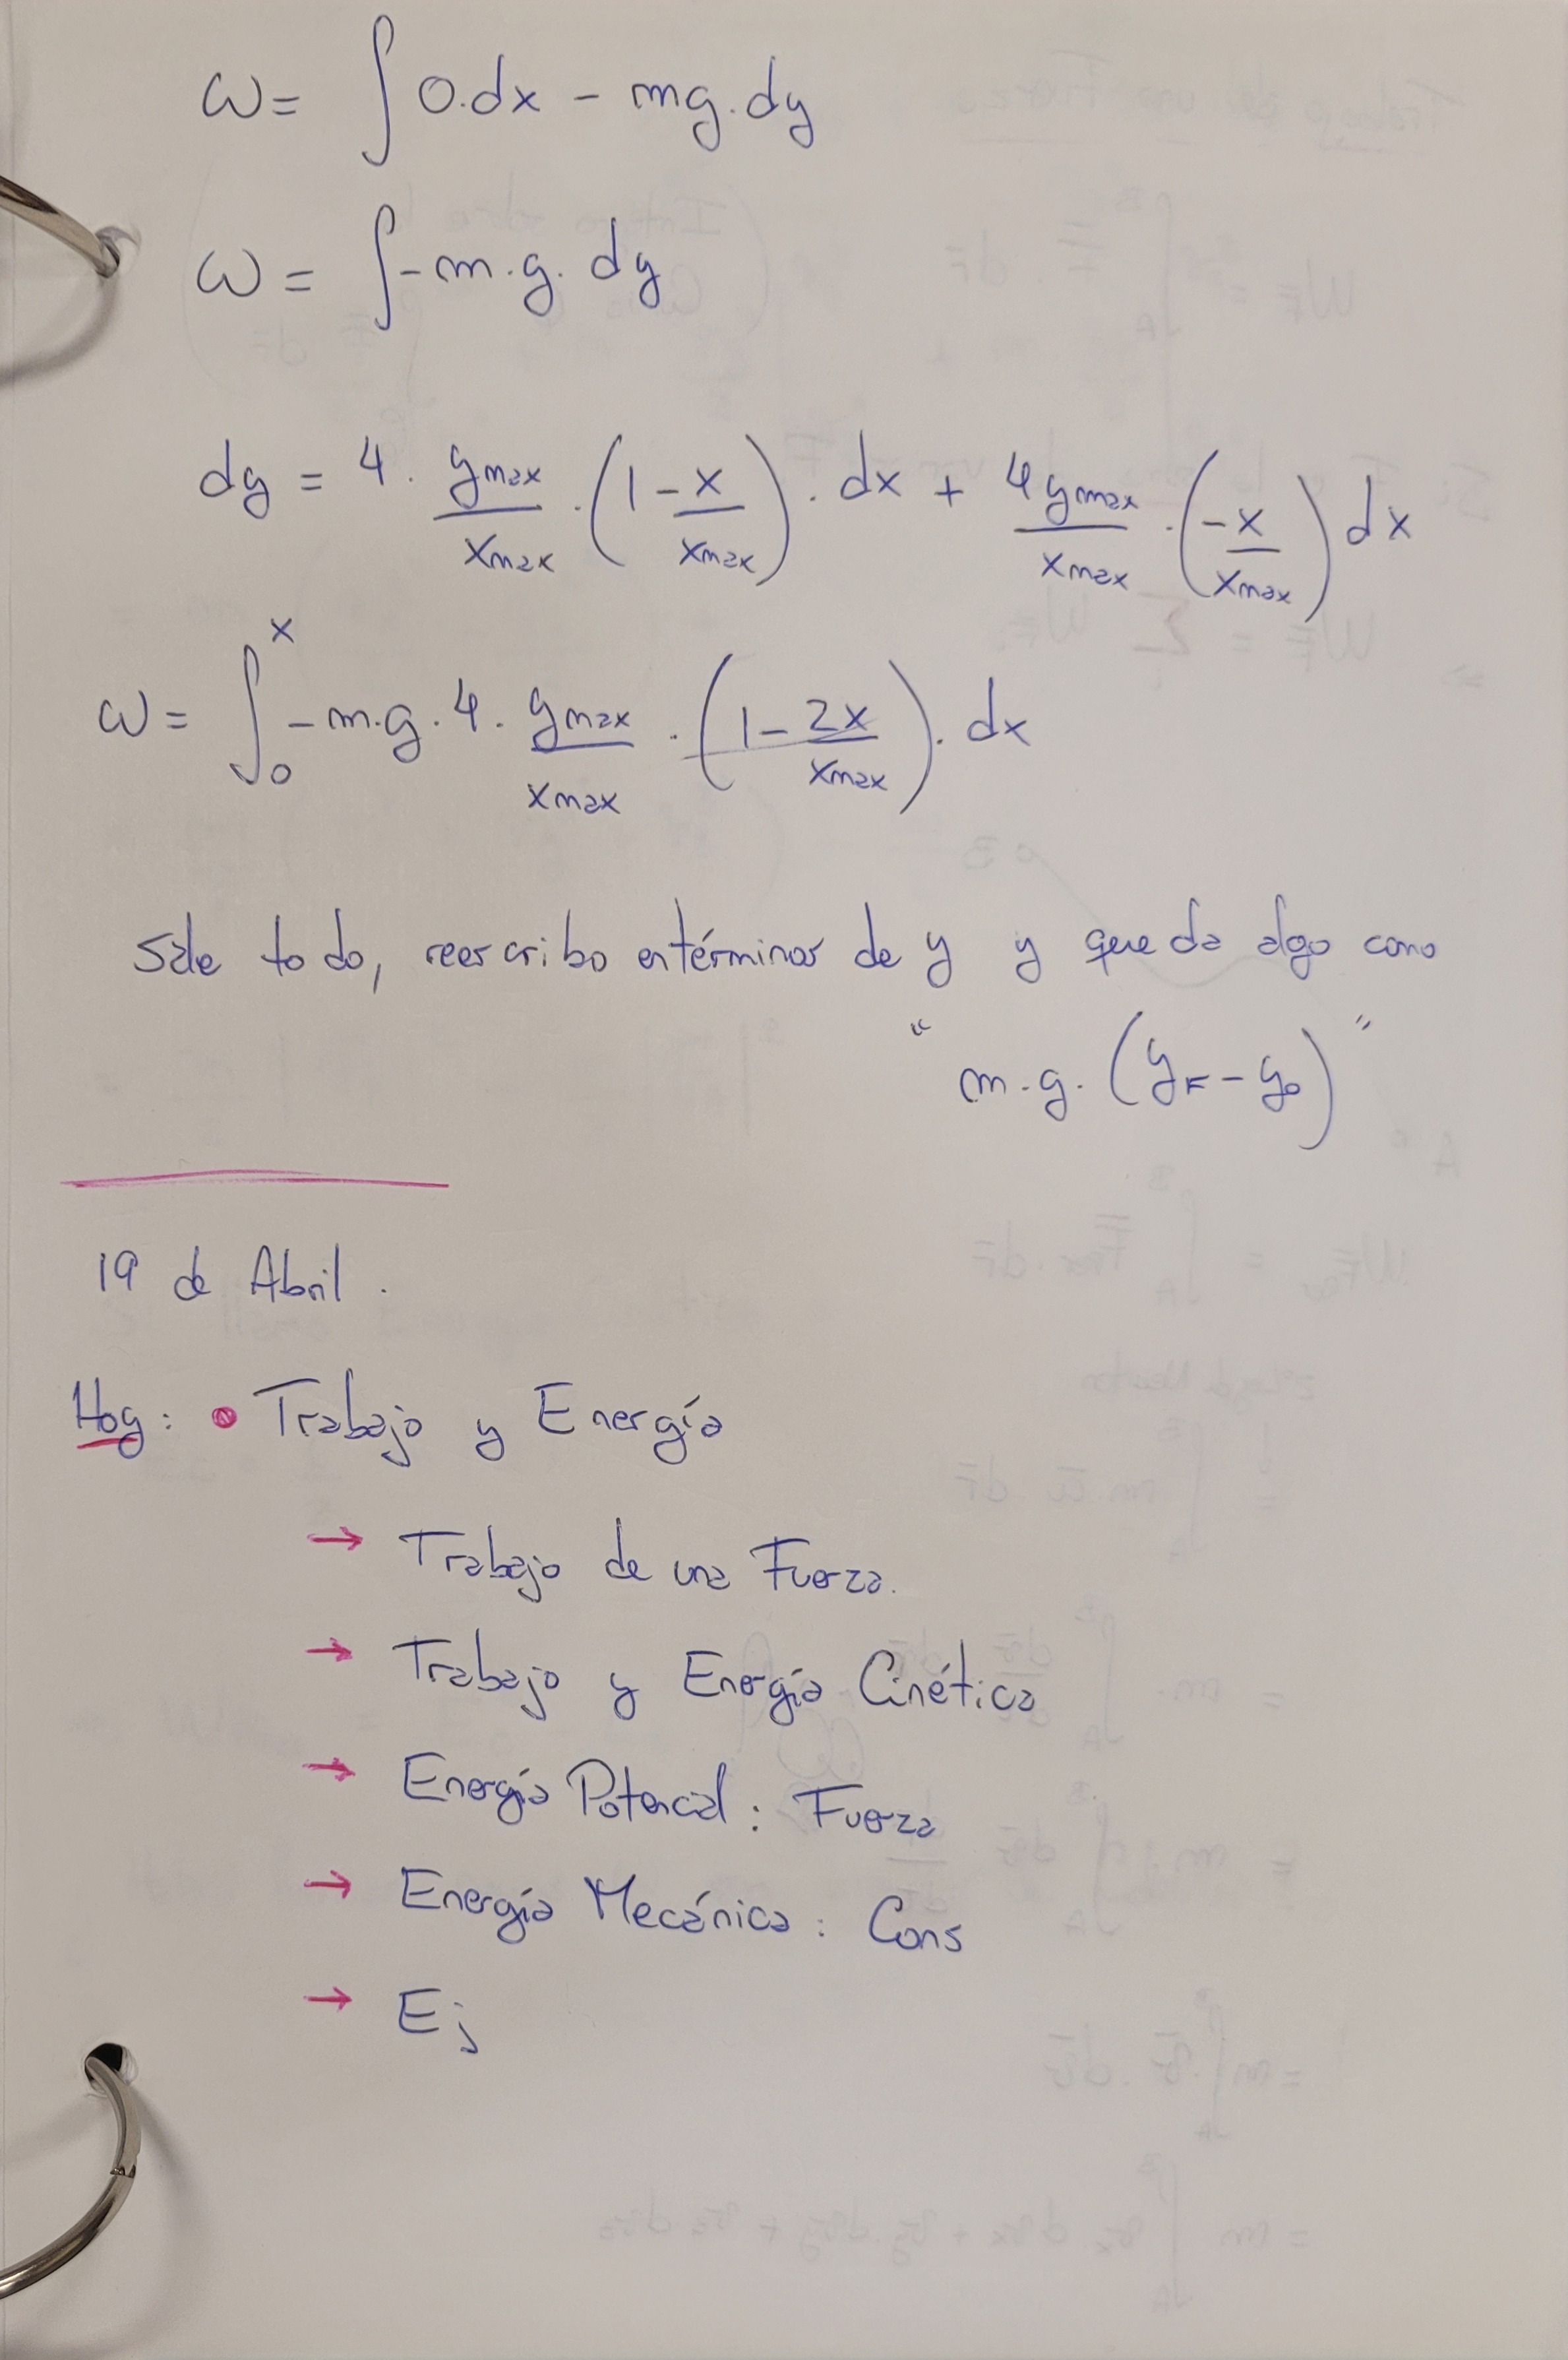 ω = ∫ 0.dx - mg.dy
ω = ∫ -m.g. dy
dy = 4 . ymax/xmax . (1 - x/xmax) . dx + 4ymax/xmax . (-x/xmax) dx
ω = ∫₀ˣ -m.g.4. ymax/xmax . (1 - 2x/xmax) . dx
Sale todo, reescribo en términos de y y queda algo como
" m.g. (yF - y0) "
19 de Abril.
Hoy: • Trabajo y Energía
→ Trabajo de una Fuerza.
→ Trabajo y Energía Cinética
→ Energía Potencial: Fuerza
→ Energía Mecánica: Cons
→ Ej